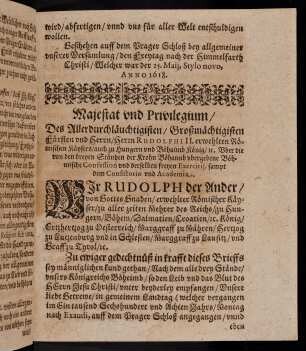 wird/ abfertigen/ vnnd vns für aller Welt entschuldigen
wollen.
Geschehen auff dem Prager Schloß bey allgemeiner
vnserer Versamlung/ den Freytag nach der Himmelfarth
Christi/ Welcher war der 25. Maij, Stylo novo,
ANNO 1618.
Majestat vnd Privilegium/
Des Allerdurchläuchtigisten/ Großmächtigisten
Fürsten vnd Herrn/ Herrn RUDOLPHI II. erwehlten Römischen Käysers/ auch zu Hungern vnd Böhaimb König/ ec. Vber die
von den dreyen Ständen der Kron Böhaimb vbergebene Böhmische Confession vnd derselben freyes Exercitij, sampt
dem Consistorio vnd Academia.
WIr RUDOLPH der Ander/
von Gottes Gnaden/ erwehlter Römischer Käyser/ zu aller zeiten Mehrer des Reichs/ zu Hungern/ Böhem/ Dalmatien/ Croatien/ ec. König/
Ertzhertzog zu Oesterreich/ Marggraff zu Mähren/ Hertzog
zu Lützenburg vnd in Schlesien/ Marggraff zu Lausitz/ vnd
Graff zu Tyrol/ ec.
Zu ewiger gedechtnüß in krafft dieses Brieffs
sey männiglichen kund gethan/ Nach dem alle drey Stände/
vnsers Königreichs Böheimb/ so den Leib vnd das Blut des
HErrn Jesu Christi/ vnter beyderley empfangen/ Vnsere
liebe Getrewe/ in gemeinem Landtag (welcher vergangen
im Ein tausend Sechshundert vnd Achten Jahrs/ Montag
nach Exaudi, auff dem Prager Schloß angegangen/ vnnd
eben